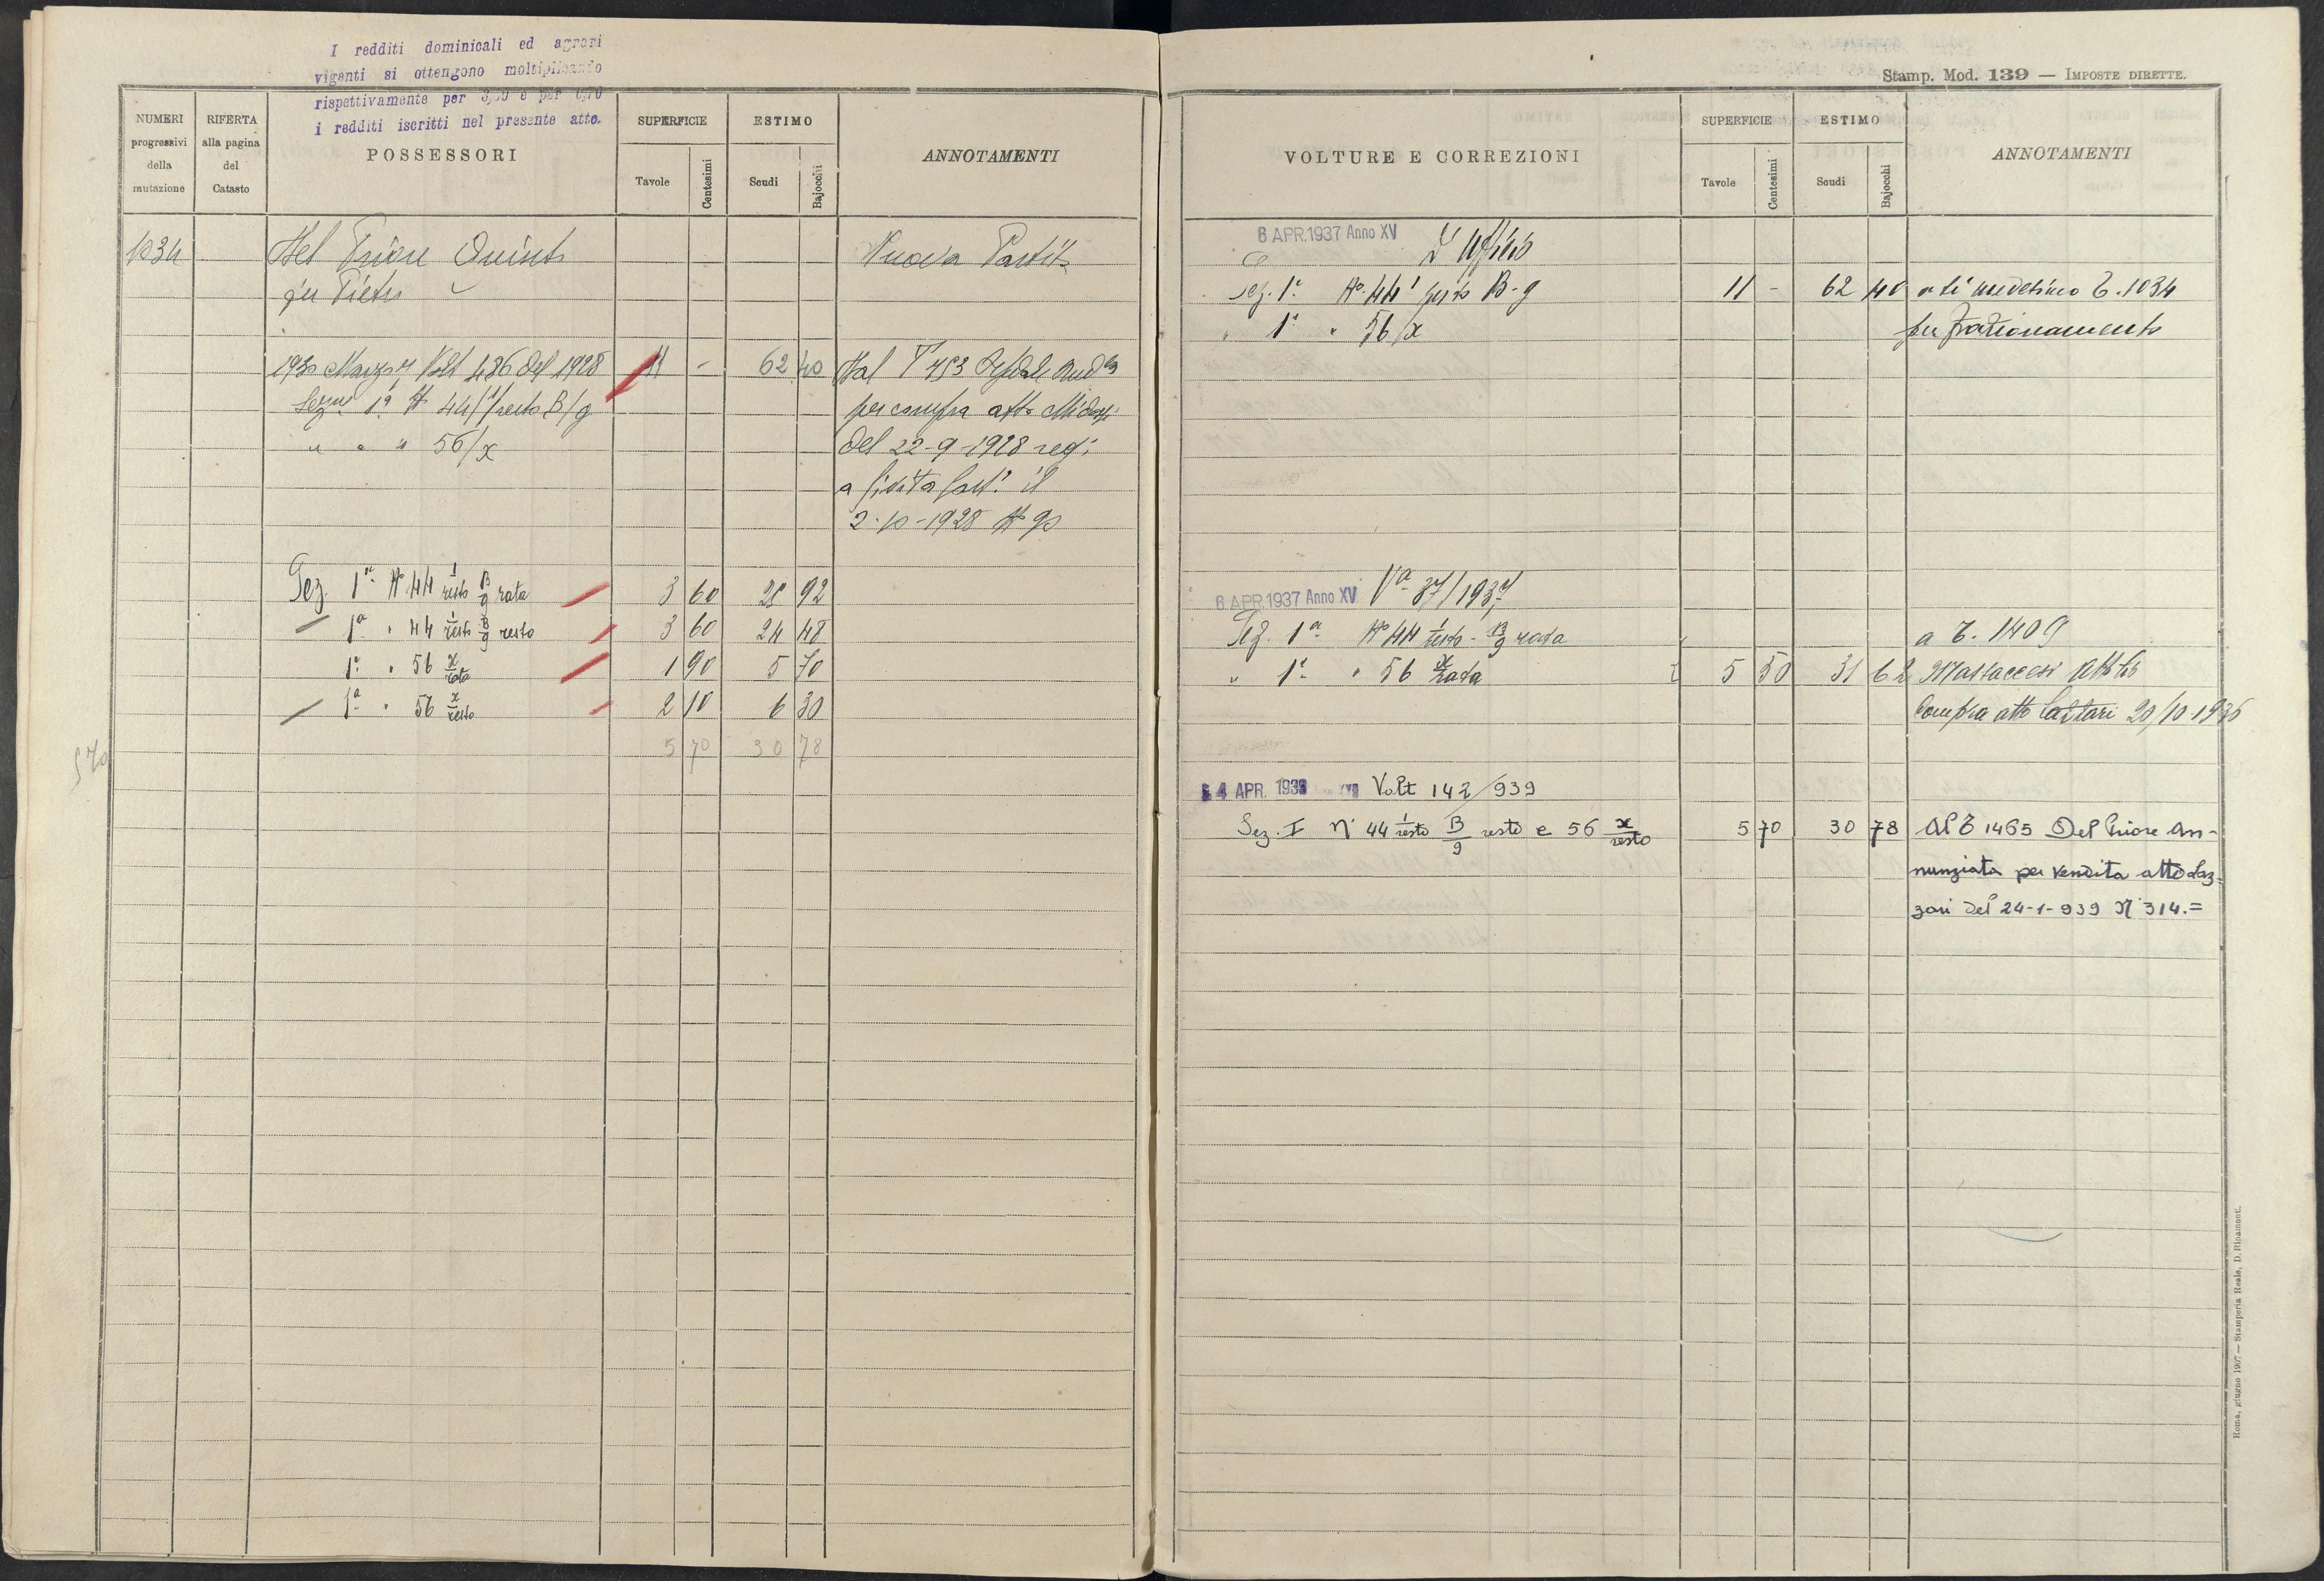 I redditi dominicali ed agrari
vigenti si ottengono moltiplicando
rispettivamente per 3,50 e per 0,70
i redditi iscritti nel presente atto.
NUMERI progressivi della mutazione
RIFERTA alla pagina del Catasto
POSSESSORI
SUPERFICIE
Tavole
Centesimi
ESTIMO
Scudi
Bajocchi
ANNOTAMENTI
1034 Del Priore Quinto Nuova Partita
fu Pietro
1930 Marzo 4 Volt 486 del 1928 11 - 62 40 Dal T 453
Sezne 1a N 44/1/resto B/g per compra atto
" " " 56/x del 22-9-1928 reg:
a il
2-10-1928 N 90
Sez. 1a N 44 1/resto B/g rata 3 60 25 92
1a " 44 1/resto B/g resto 3 60 24 48
1a " 56 x/rata 1 90 5 70
1a " 56 x/resto 2 10 6 30
5 70 30 78
570
Stamp. Mod. 139 — IMPOSTE DIRETTE.
VOLTURE E CORREZIONI
SUPERFICIE
Tavole
Centesimi
ESTIMO
Scudi
Bajocchi
ANNOTAMENTI
6 APR. 1937 Anno XV D'Ufficio
Sez. 1a No 44 1 resto B-g 11 - 62 40 a sé medesimo T. 1034
" 1a " 56/x per frazionamento
6 APR. 1937 Anno XV Va 37/1937
Sez. 1a No 44 1/resto - B/g rata a T. 1409
" 1a " 56 x/rata 5 50 31 62 Mattaccesi Attilio
Compra atto Lattari 20/10-1936
4 APR. 1939 Volt 142/939
Sez. I N° 44 1/resto B/g resto e 56 x/resto 5 70 30 78 Al T 1465 Del Priore An-
nunziata per vendita atto Laz-
zari del 24-1-939 N° 314.=
Roma, giugno 1907 — Stamperia Reale, D. Ripamonti.